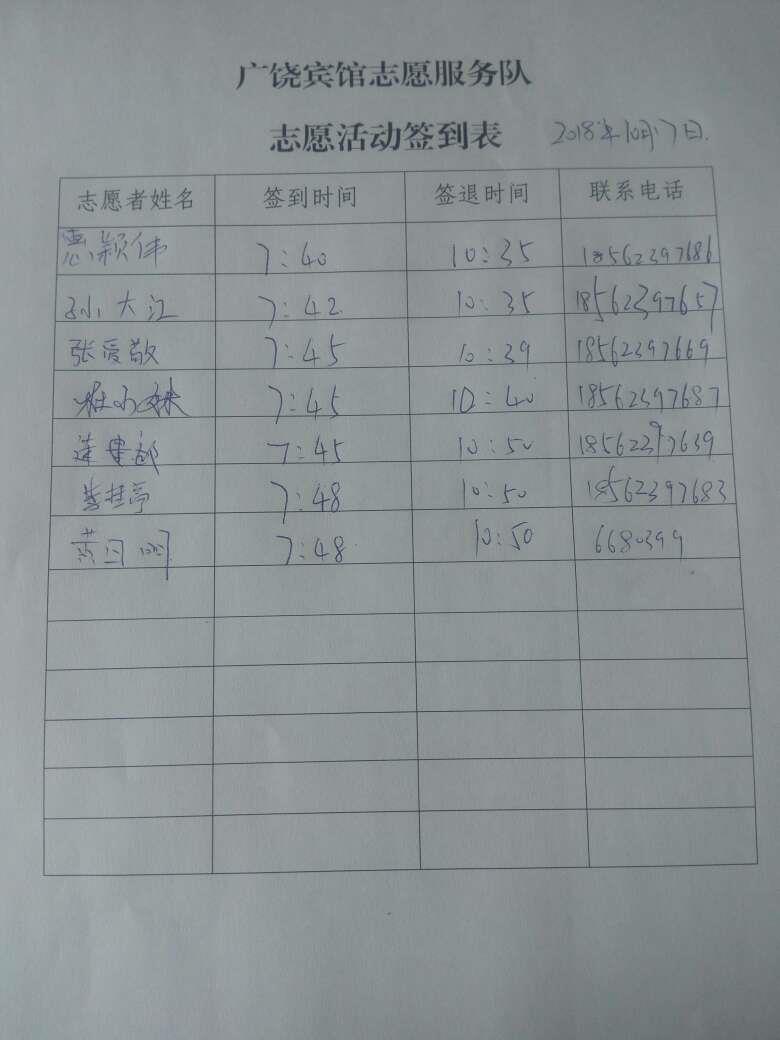 广饶宾馆志愿服务队
志愿活动签到表 2018年10月17日.
志愿者姓名 签到时间 签退时间 联系电话
惠颖伟 7:40 10:35 18562397686
孙大江 7:42 10:35 18562397657
张爱敬 7:45 10:39 18562397669
7:45 10:40 18562397687
7:45 10:50 18562397639
李桂亭 7:48 10:50 18562397683
7:48 10:50 6680399